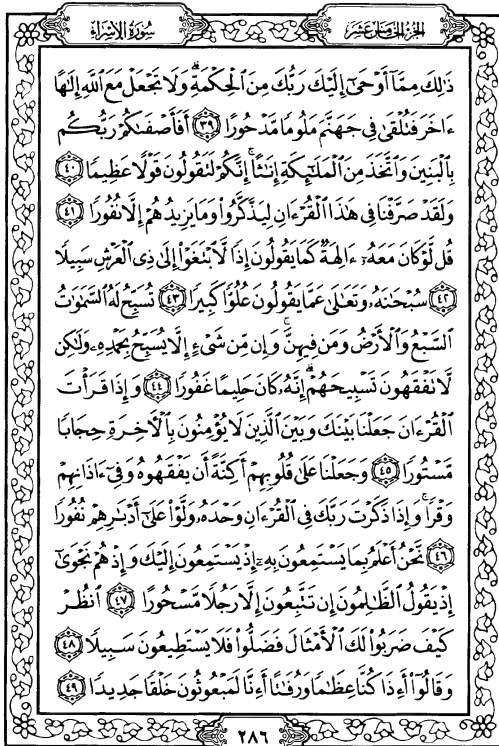 الجزء الخامس عشر
سورة الإسراء
ذَٰلِكَ مِمَّآ أَوْحَىٰٓ إِلَيْكَ رَبُّكَ مِنَ ٱلْحِكْمَةِۗ وَلَا تَجْعَلْ مَعَ ٱللَّهِ إِلَٰهًا
ءَاخَرَ فَتُلْقَىٰ فِى جَهَنَّمَ مَلُومًا مَّدْحُورًا ٣٩ أَفَأَصْفَىٰكُمْ رَبُّكُم
بِٱلْبَنِينَ وَٱتَّخَذَ مِنَ ٱلْمَلَٰٓئِكَةِ إِنَٰثًاۚ إِنَّكُمْ لَتَقُولُونَ قَوْلًا عَظِيمًا ٤٠
وَلَقَدْ صَرَّفْنَا فِى هَٰذَا ٱلْقُرْءَانِ لِيَذَّكَّرُوا۟ وَمَا يَزِيدُهُمْ إِلَّا نُفُورًا ٤١
قُل لَّوْ كَانَ مَعَهُۥٓ ءَالِهَةٌ كَمَا يَقُولُونَ إِذًا لَّٱبْتَغَوْا۟ إِلَىٰ ذِى ٱلْعَرْشِ سَبِيلًا
٤٢ سُبْحَٰنَهُۥ وَتَعَٰلَىٰ عَمَّا يَقُولُونَ عُلُوًّا كَبِيرًا ٤٣ تُسَبِّحُ لَهُ ٱلسَّمَٰوَٰتُ
ٱلسَّبْعُ وَٱلْأَرْضُ وَمَن فِيهِنَّۚ وَإِن مِّن شَىْءٍ إِلَّا يُسَبِّحُ بِحَمْدِهِۦ وَلَٰكِن
لَّا تَفْقَهُونَ تَسْبِيحَهُمْۗ إِنَّهُۥ كَانَ حَلِيمًا غَفُورًا ٤٤ وَإِذَا قَرَأْتَ
ٱلْقُرْءَانَ جَعَلْنَا بَيْنَكَ وَبَيْنَ ٱلَّذِينَ لَا يُؤْمِنُونَ بِٱلْءَاخِرَةِ حِجَابًا
مَّسْتُورًا ٤٥ وَجَعَلْنَا عَلَىٰ قُلُوبِهِمْ أَكِنَّةً أَن يَفْقَهُوهُ وَفِىٓ ءَاذَانِهِمْ
وَقْرًاۚ وَإِذَا ذَكَرْتَ رَبَّكَ فِى ٱلْقُرْءَانِ وَحْدَهُۥ وَلَّوْا۟ عَلَىٰٓ أَدْبَٰرِهِمْ نُفُورًا
٤٦ نَّحْنُ أَعْلَمُ بِمَا يَسْتَمِعُونَ بِهِۦٓ إِذْ يَسْتَمِعُونَ إِلَيْكَ وَإِذْ هُمْ نَجْوَىٰٓ
إِذْ يَقُولُ ٱلظَّٰلِمُونَ إِن تَتَّبِعُونَ إِلَّا رَجُلًا مَّسْحُورًا ٤٧ ٱنظُرْ
كَيْفَ ضَرَبُوا۟ لَكَ ٱلْأَمْثَالَ فَضَلُّوا۟ فَلَا يَسْتَطِيعُونَ سَبِيلًا ٤٨
وَقَالُوٓا۟ أَءِذَا كُنَّا عِظَٰمًا وَرُفَٰتًا أَءِنَّا لَمَبْعُوثُونَ خَلْقًا جَدِيدًا ٤٩
٢٨٦